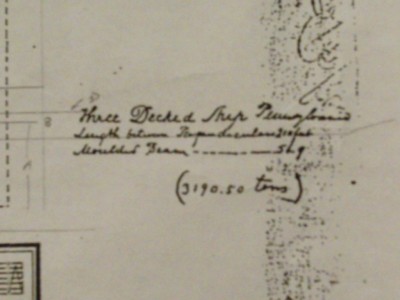 Three Decked Ship Pennsylvania
Length between Perpendiculars 210 feet
Moulded Beam - - - - - - - 56 9
(3190.50 tons)